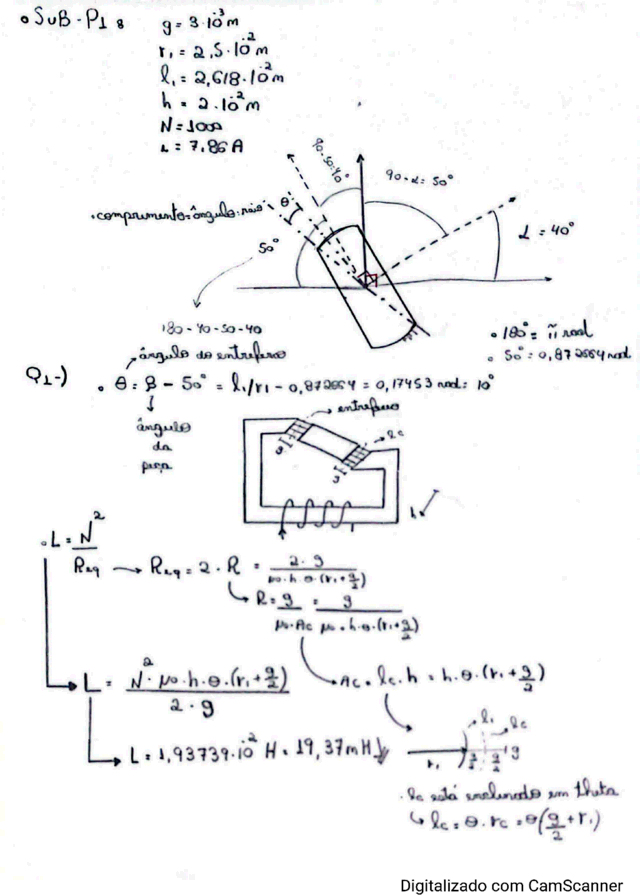 • SUB-P1:
g = 3·10⁻³ m
r₁ = 2,5·10⁻² m
l₁ = 2,618·10⁻² m
h = 2·10⁻² m
N = 1000
i = 7,86 A
90-50=40°
90-α = 50°
θ
• comprimento=ângulo·raio
50°
α = 40°
180-40-50-40
• 180° = π rad
• 50° = 0,872664 rad
ângulo do entreferro
Q1-) • θ = β - 50° = l₁/r₁ - 0,872664 = 0,17453 rad = 10°
ângulo da peça
entreferro
lc
g
g
h
• L = N²/Req → Req = 2·R = 2·g/(μ₀·h·θ·(r₁+g/2))
R = g/(μ₀·Ac) = g/(μ₀·h·θ·(r₁+g/2))
L = N²·μ₀·h·θ·(r₁+g/2)/(2·g)
Ac = lc·h = h·θ·(r₁+g/2)
L = 1,93739·10⁻² H = 19,37mH
l₁
lc
r₁
g/2
g/2
g
• lc está inclinado em theta
lc = θ·rc = θ(g/2+r₁)
Digitalizado com CamScanner